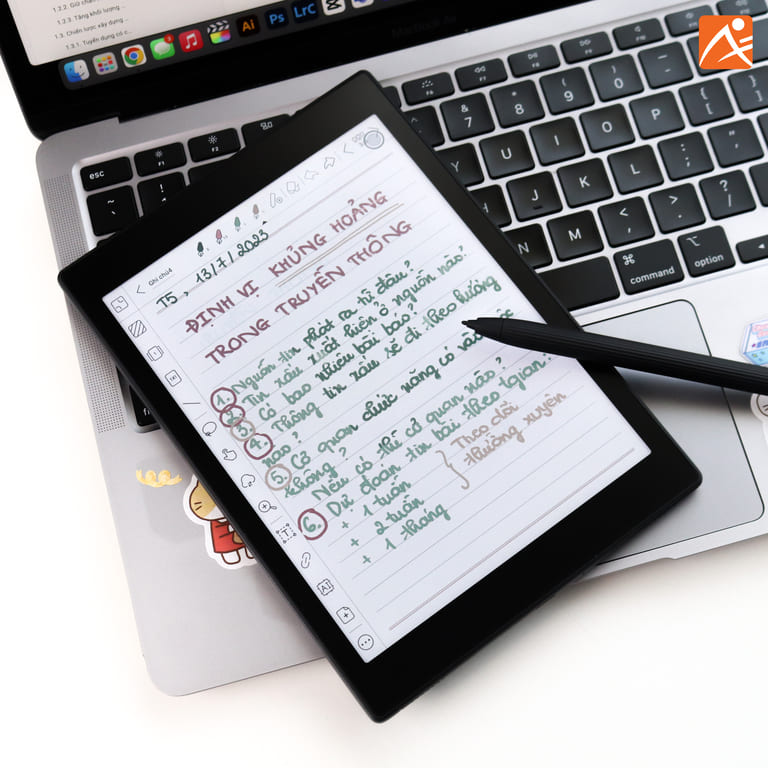 1.2.2. Giữ chun
1.2.3. Tăng khối lượng ...
1.3. Chiến lược xây dựng ...
1.3.1. Tuyển dụng có c...
Ai Ps LrC
MacBook Air
esc F1 F2 F6 F7 F8 F9 F10 F11
~ ` ! 1 & 7 * 8 ( 9 ) 0 _ -
Y U I O P { [ } ]
J K L : ; " '
N M < , > . ? /
⌘ command ⌥ option
Ghi chú4
T5, 13/7/2023
ĐỊNH VỊ KHỦNG HOẢNG
TRONG TRUYỀN THÔNG
1. Nguồn tin phát ra từ đâu?
2. Tin xấu xuất hiện ở nguồn nào?
3. Có bao nhiêu bài báo?
4. Thông tin xấu sẽ đi theo hướng
nào?
5. Cơ quan chức năng có vào
không?
Nếu có thì cơ quan nào?
6. Dự đoán tin bài theo tgian?
+ 1 tuần
+ 2 tuần
+ 1 tháng
} Theo dõi
thường xuyên
AI